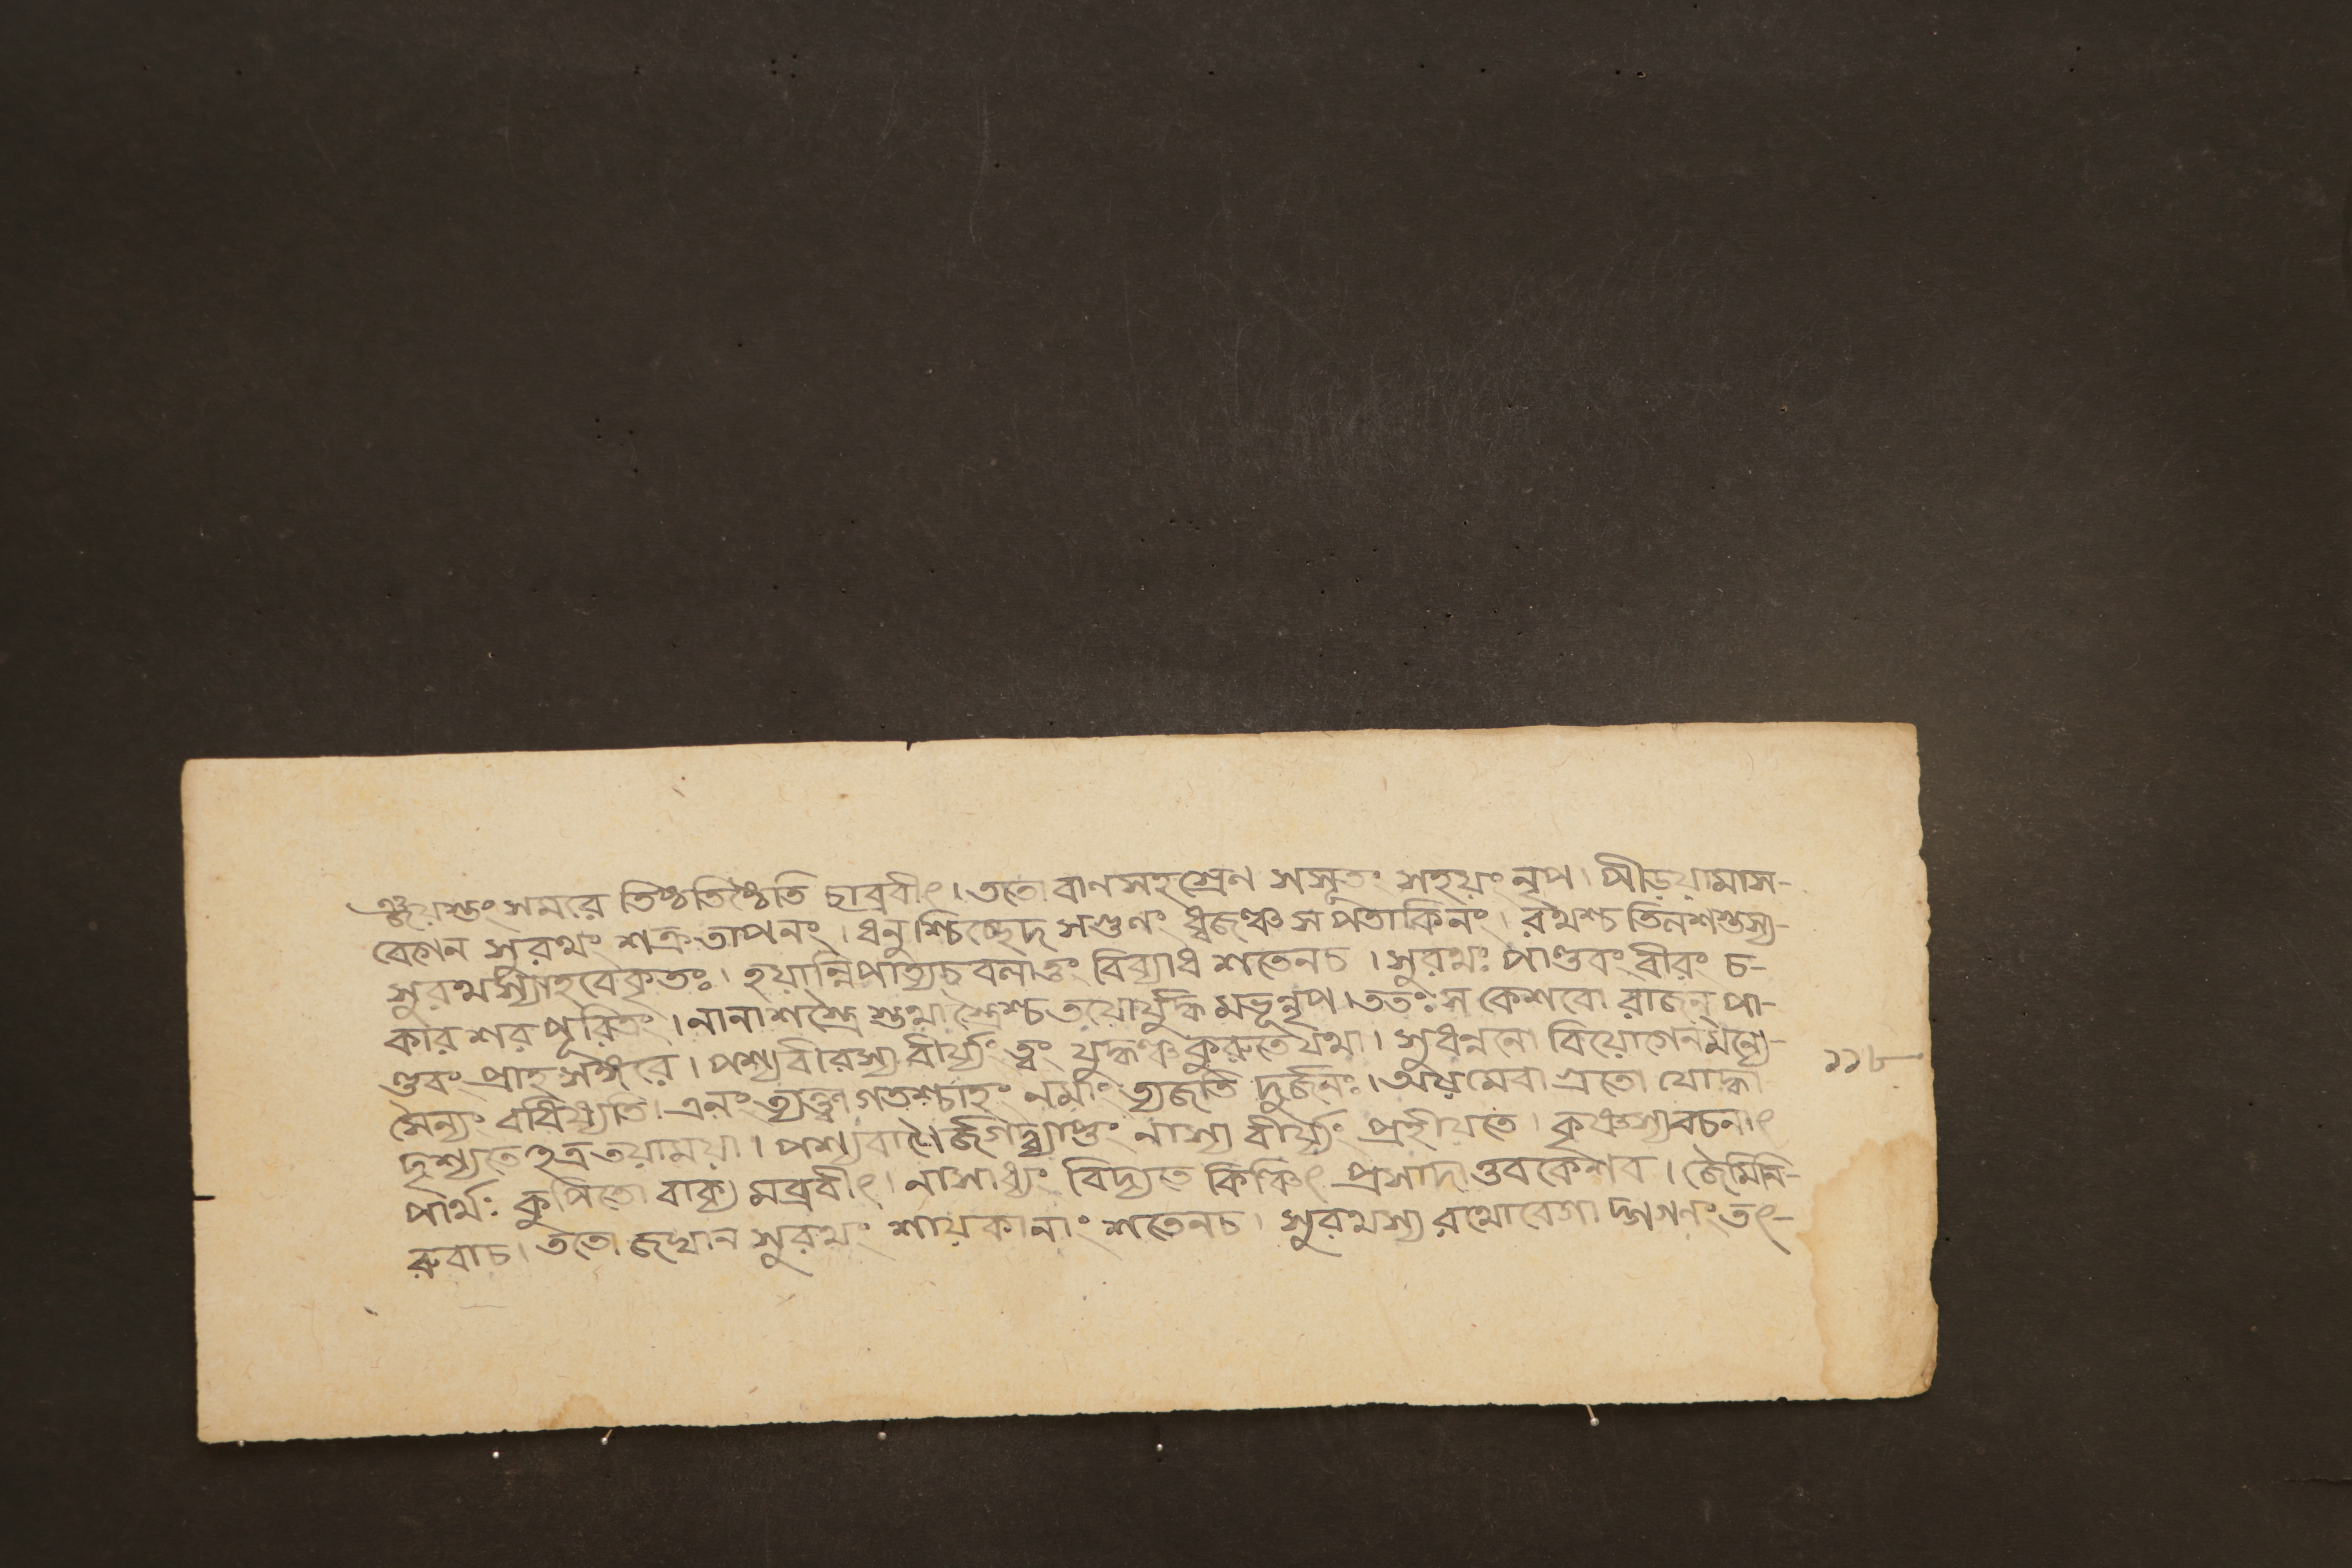 ঞ্জয়স্তং সমরে তিষ্ঠতিষ্ঠেতি চাব্রবীৎ। ততো বাণসহস্রেণ সসূতং সহয়ং নৃপ। পীড়য়ামাস-
বেগেন সুরথং শত্রুতাপনং। ধনুশ্চিচ্ছেদ সগুণং ধ্বজঞ্চ সপতাকিনং। রথশ্চ তিলশস্তস্য-
সুরথস্যাহবেকৃতঃ। হয়ান্নিপাত্যচ বলাত্তং বিব্যাধ শতেনচ। সুরথঃ পাণ্ডবং বীরং চ-
কার শর পূরিতং। নানাশস্ত্রৈ স্তথাস্ত্রৈশ্চ তয়োর্যুদ্ধ মভূন্নৃপ। ততঃ স কেশবো রাজন্ পা-
ণ্ডবং প্রাহ সঙ্গরে। পশ্য বীরস্য বীর্য্যং ত্বং যুদ্ধঞ্চ কুরুতে যথা। সুধন্বনো বিয়োগেন মন্যে-
সৈন্যং বধিষ্যতি। এনং ত্যক্ত্বা গতশ্চাহং নমাং ত্যজতি দুর্জনঃ। অয়মেবা গ্রতো যোদ্ধা
দৃশ্যতে হত্র ত্বয়াময়া। পশ্য বাণৈর্জগদ্ব্যাপ্তং নাস্য বীর্য্যং প্রহীয়তে। কৃষ্ণস্য বচনাৎ
পার্থঃ কুপিতো বাক্য মব্রবীৎ। নাসাধ্যং বিদ্যতে কিঞ্চিৎ প্রসাদাত্তব কেশব। জৈমিনি-
রুবাচ। ততো জঘান সুরথং শায়কানাং শতেনচ। সুরথস্য রথোবেগা দ্গগনং তৎ-
১১৮